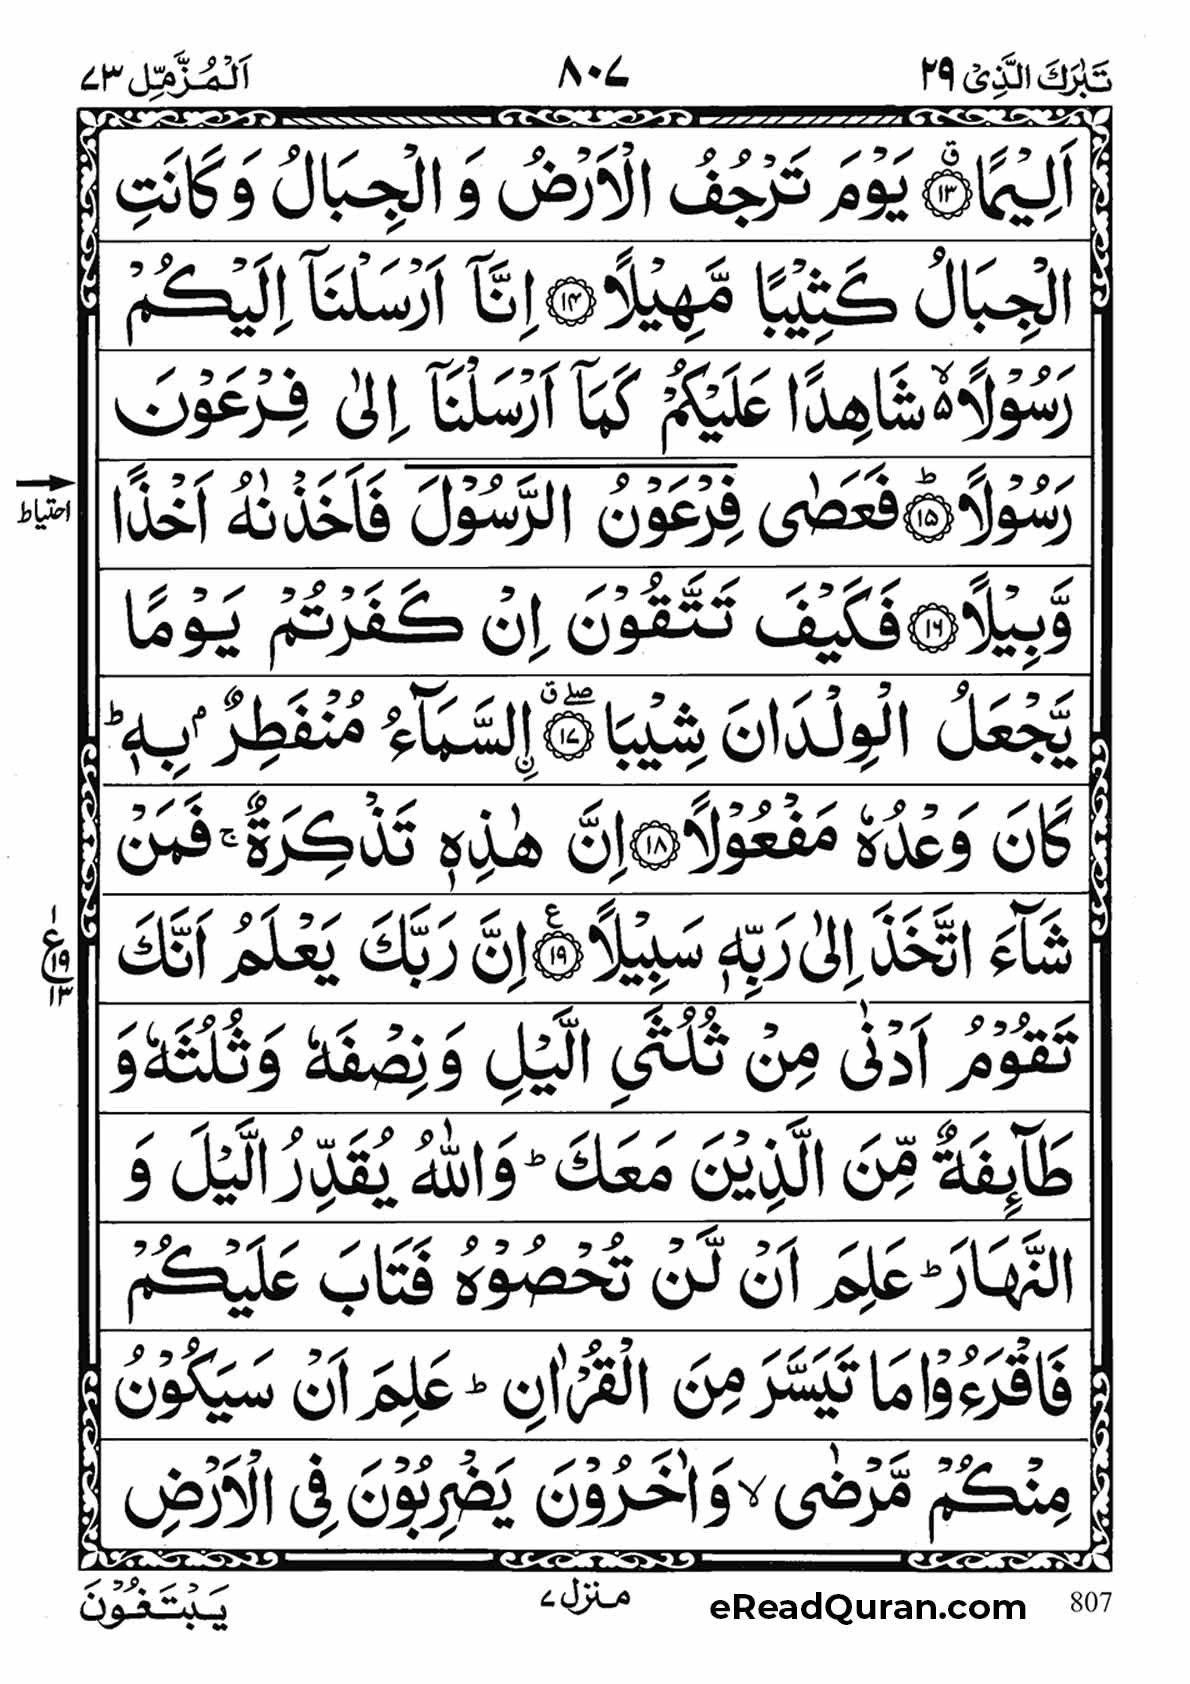 تَبٰرَكَ الَّذِیْ ۲۹ ۸۰۷ اَلْمُزَّمِّل ۷۳
اَلِیْمًا ۱۳ ق یَوْمَ تَرْجُفُ الْاَرْضُ وَ الْجِبَالُ وَ كَانَتِ
الْجِبَالُ كَثِیْبًا مَّهِیْلًا ۱۴ اِنَّاۤ اَرْسَلْنَاۤ اِلَیْكُمْ
رَسُوْلًا ۙ۵ شَاهِدًا عَلَیْكُمْ كَمَاۤ اَرْسَلْنَاۤ اِلٰی فِرْعَوْنَ
رَسُوْلًا ۱۵ ط فَعَصٰی فِرْعَوْنُ الرَّسُوْلَ فَاَخَذْنٰهُ اَخْذًا
احتیاط
وَّبِیْلًا ۱۶ فَكَیْفَ تَتَّقُوْنَ اِنْ كَفَرْتُمْ یَوْمًا
یَّجْعَلُ الْوِلْدَانَ شِیْبَا ۱۷ صلے ق ن ِالسَّمَآءُ مُنْفَطِرٌۢ بِهٖ ط
كَانَ وَعْدُهٗ مَفْعُوْلًا ۱۸ اِنَّ هٰذِهٖ تَذْكِرَةٌ ج فَمَنْ
شَآءَ اتَّخَذَ اِلٰی رَبِّهٖ سَبِیْلًا ۱۹ ع اِنَّ رَبَّكَ یَعْلَمُ اَنَّكَ
۱ ع ۱۹ ۱۳
تَقُوْمُ اَدْنٰی مِنْ ثُلُثَیِ الَّیْلِ وَ نِصْفَهٗ وَ ثُلُثَهٗ وَ
طَآىِٕفَةٌ مِّنَ الَّذِیْنَ مَعَكَ ط وَاللّٰهُ یُقَدِّرُ الَّیْلَ وَ
النَّهَارَ ط عَلِمَ اَنْ لَّنْ تُحْصُوْهُ فَتَابَ عَلَیْكُمْ
فَاقْرَءُوْا مَا تَیَسَّرَ مِنَ الْقُرْاٰنِ ط عَلِمَ اَنْ سَیَكُوْنُ
مِنْكُمْ مَّرْضٰی لا وَ اٰخَرُوْنَ یَضْرِبُوْنَ فِی الْاَرْضِ
یَبْتَغُوْنَ منزل ۷ eReadQuran.com 807